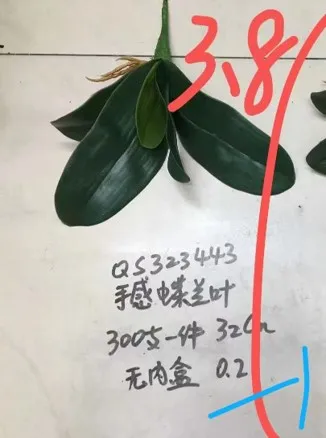 3.8
QS323443
手感蝶兰叶
3005一件 32Cm
无内盒 0.2